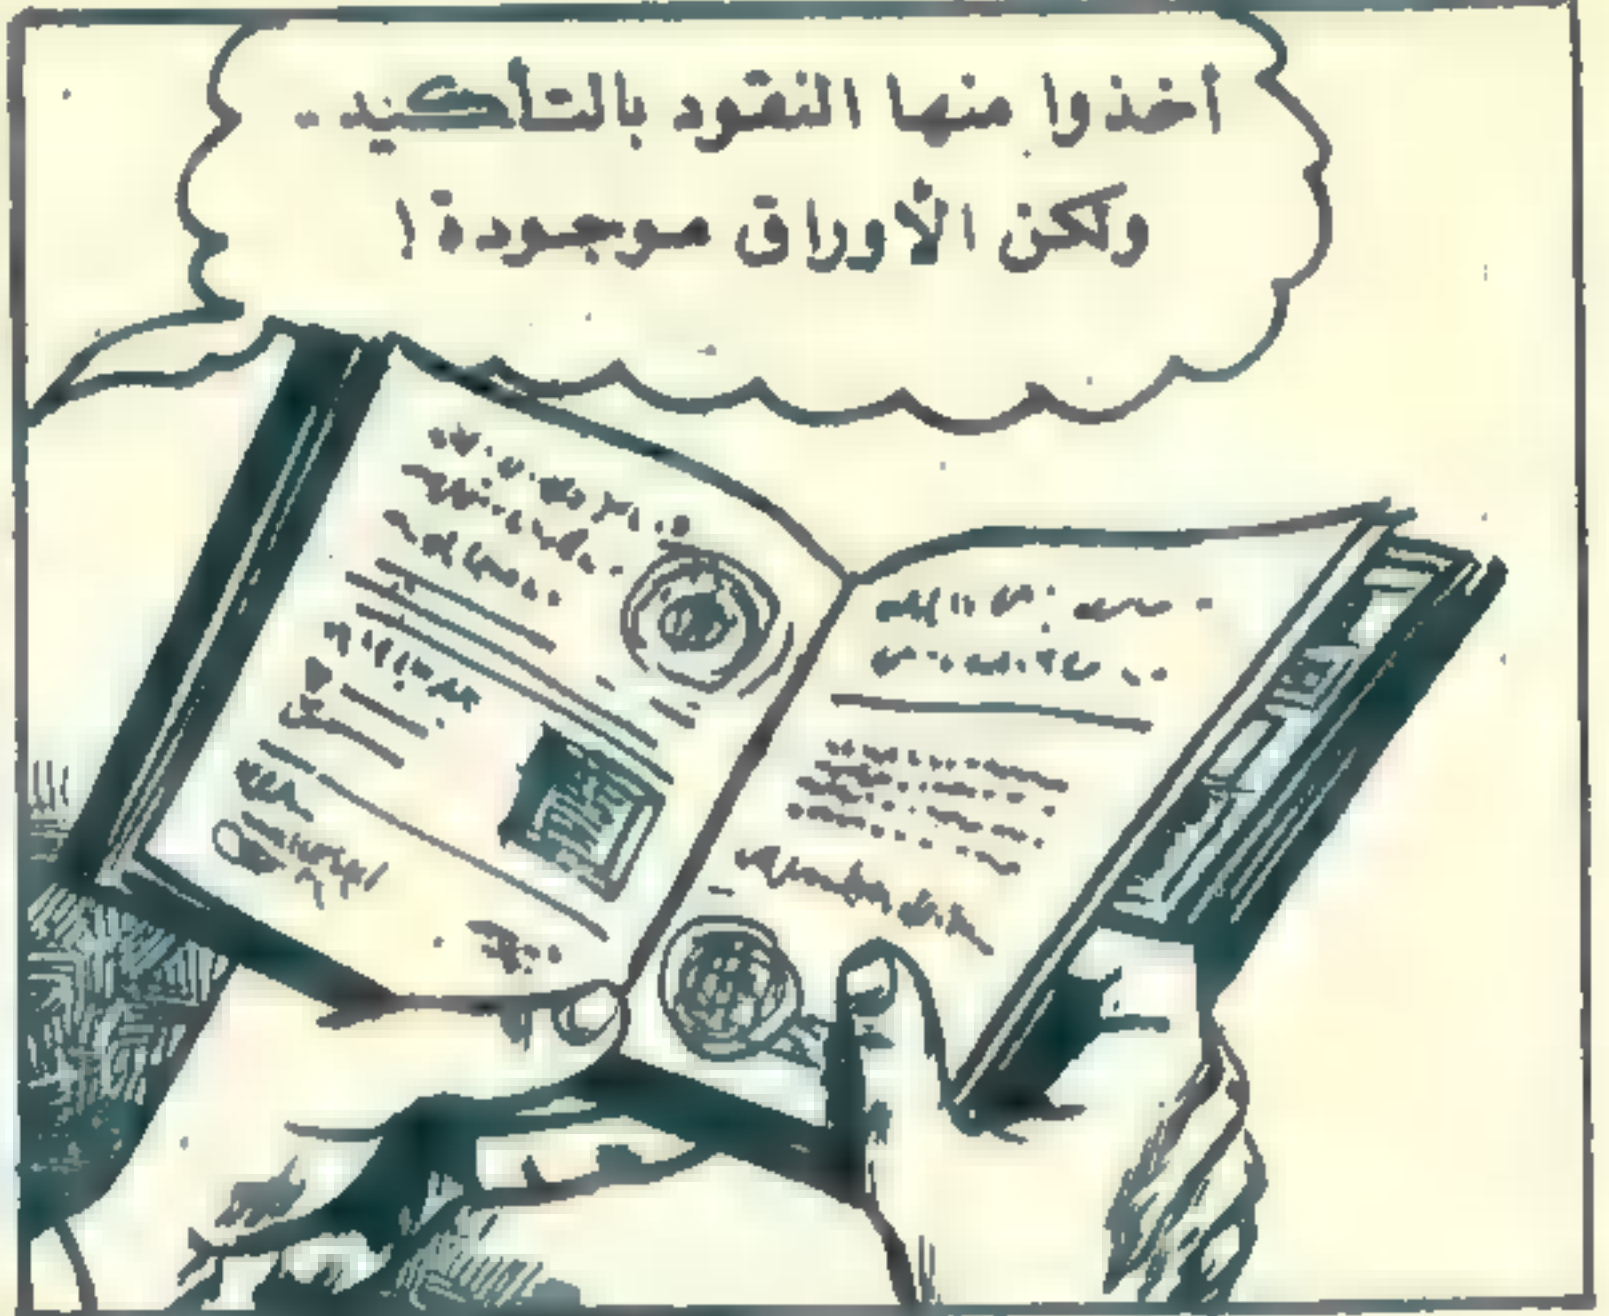 أخذوا منها النقود بالتأكيد..
ولكن الأوراق موجودة!